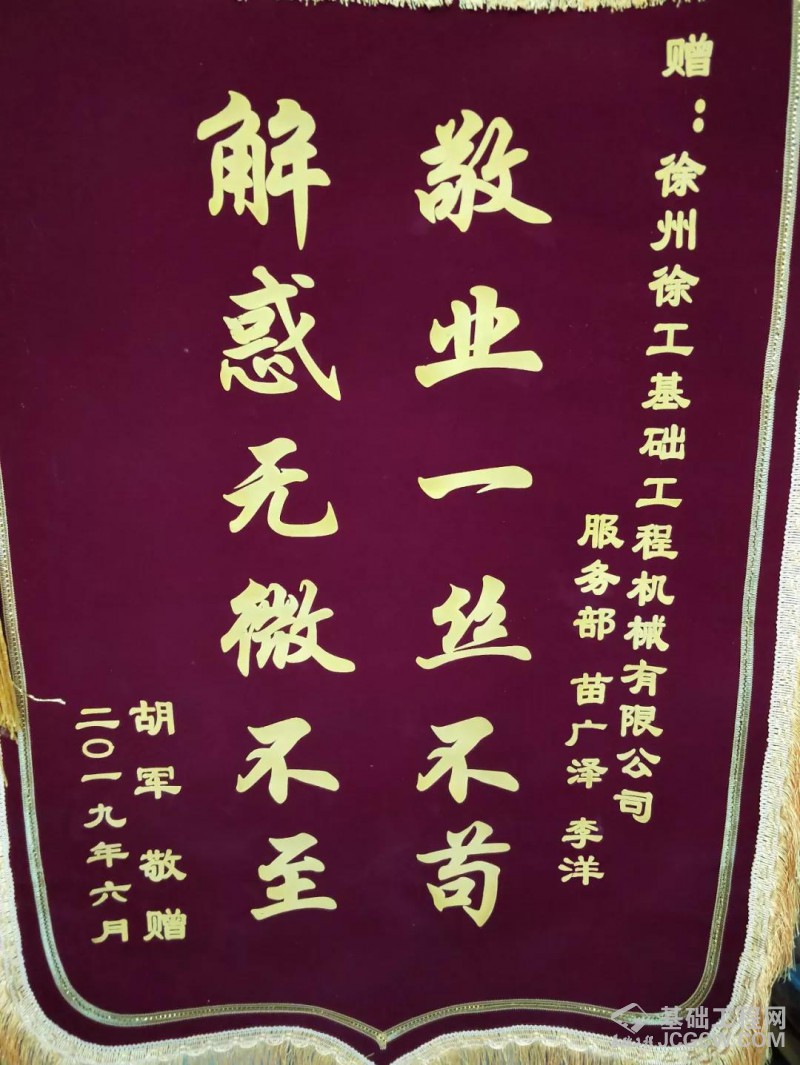 赠：徐州徐工基础工程机械有限公司
服务部 苗广泽 李洋
敬业一丝不苟
解惑无微不至
胡军 敬赠
二〇一九年六月
基础工程网